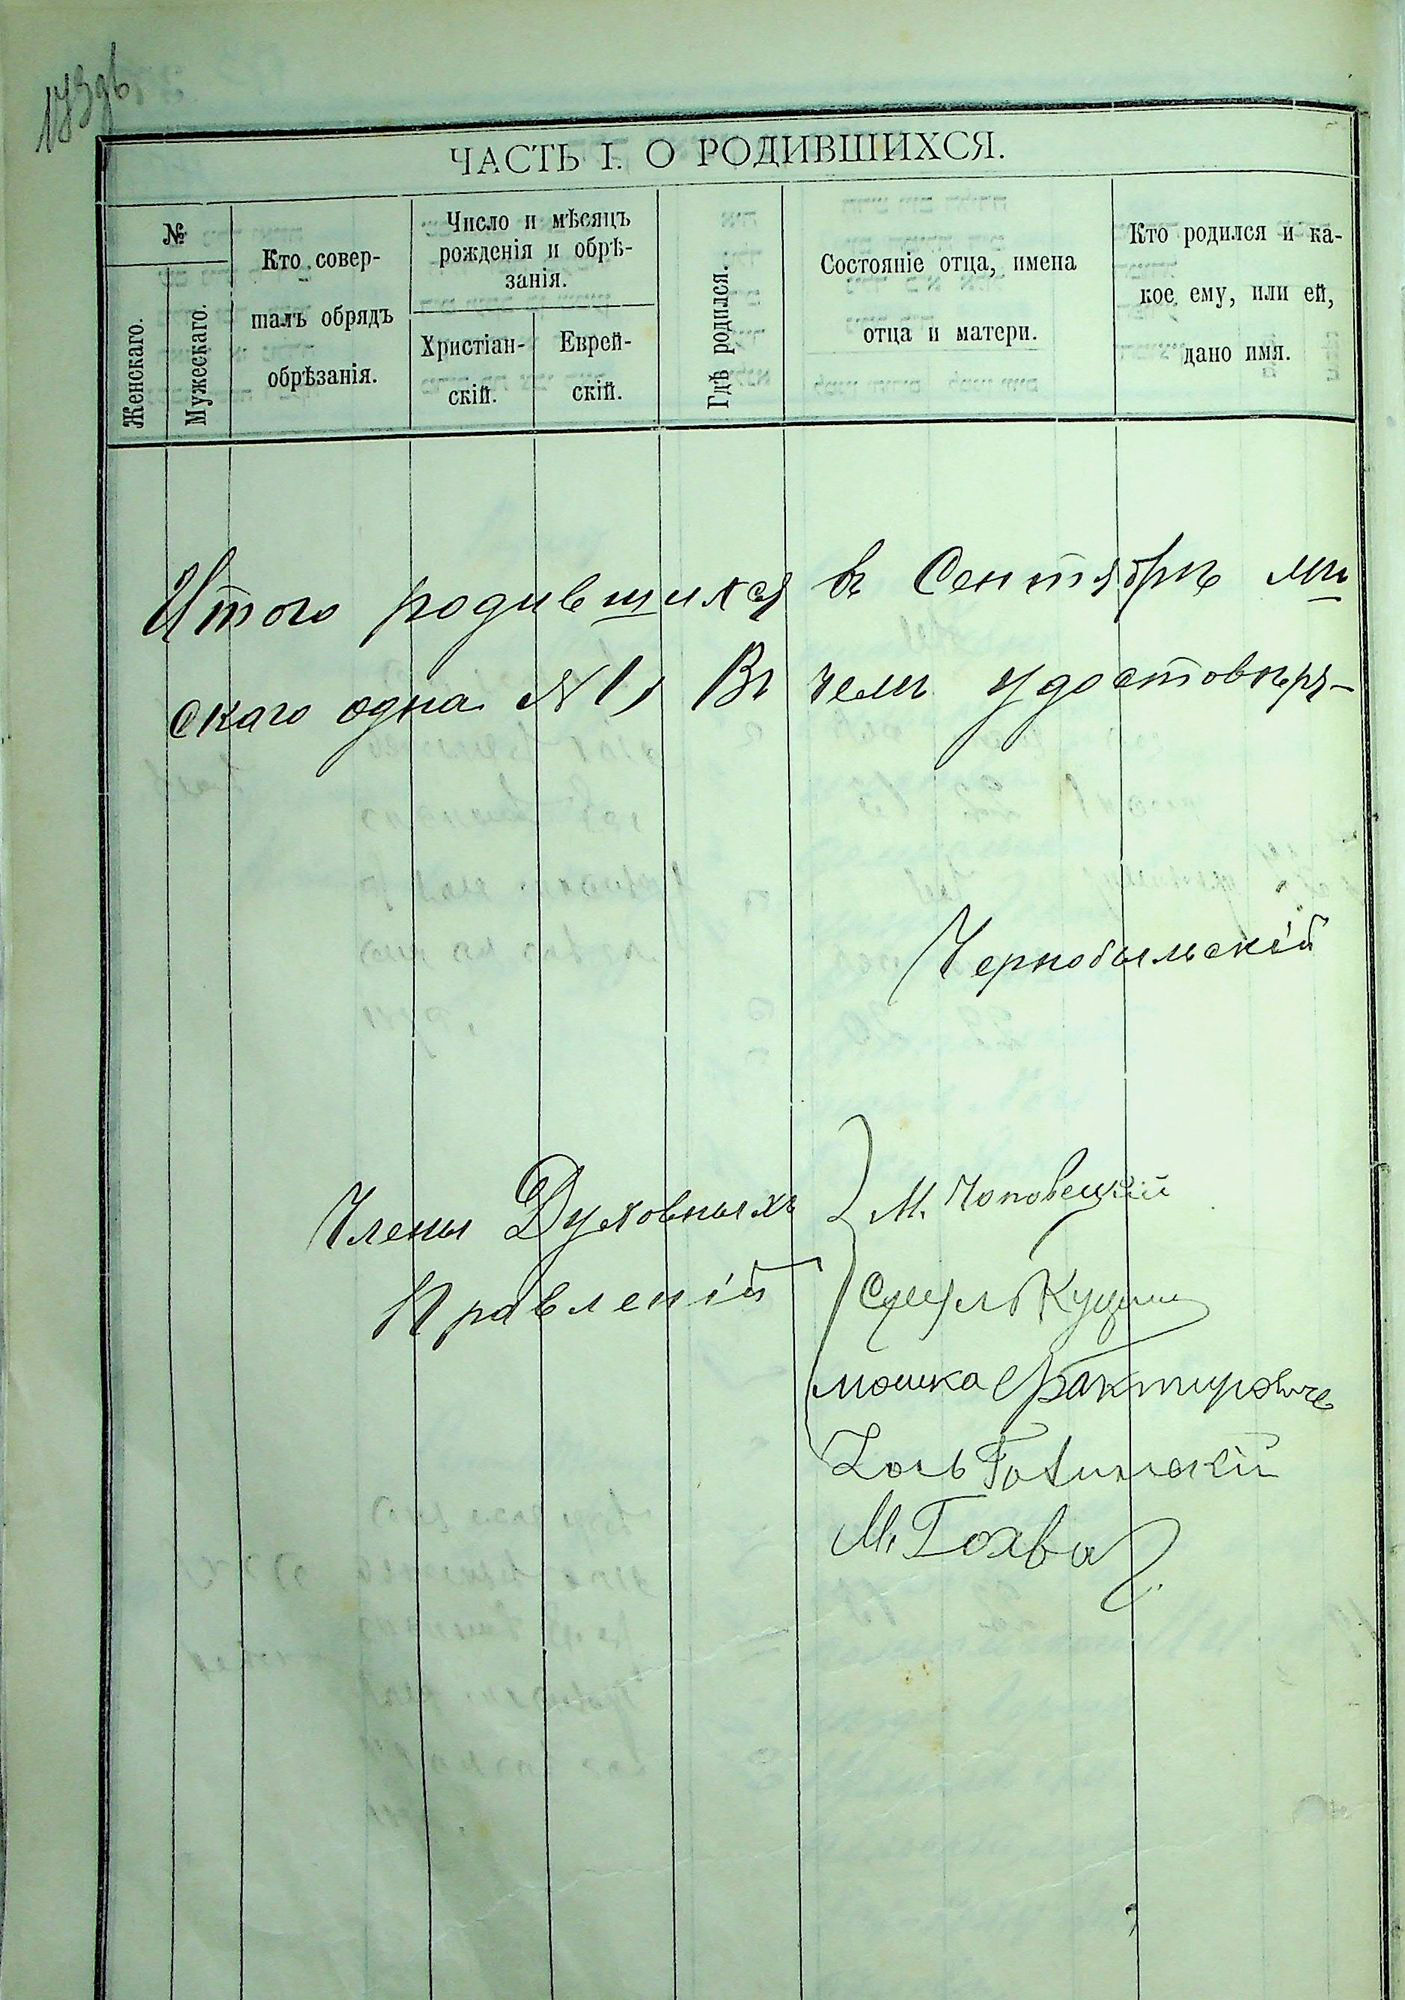 ЧАСТЬ I. О РОДИВШИХСЯ.
№
Женскаго.
Мужескаго.
Кто совер-
шалъ обрядъ
обрѣзанія.
Число и мѣсяцъ
рожденія и обрѣ-
занія.
Христіан-
скій.
Еврей-
скій.
Гдѣ родился.
Состояніе отца, имена
отца и матери.
Кто родился и ка-
кое ему, или ей,
дано имя.
Итого родившихся въ Сентябрѣ
скаго одна №1, Въ чемъ удостовѣря-
Чернобыльскій
Члены Духовныхъ
Правленій
М. Чоповецкій
Мошка
М.